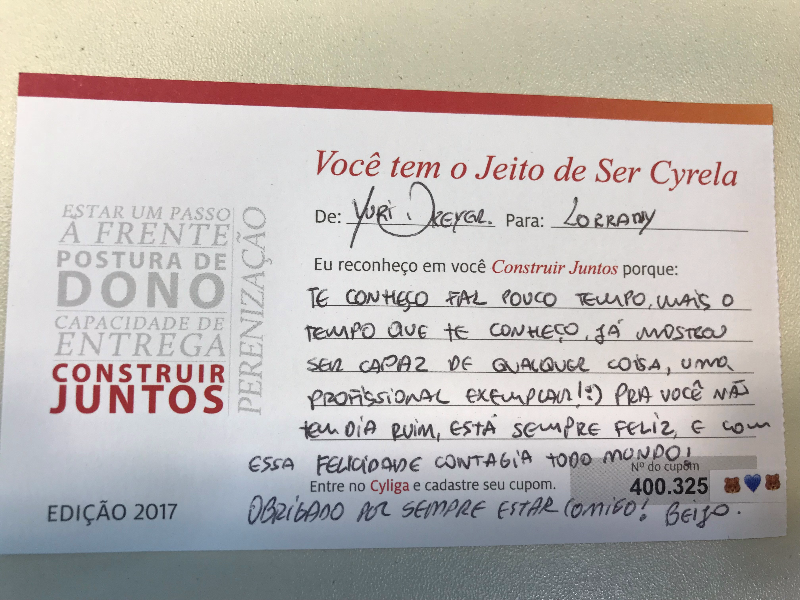 Você tem o Jeito de Ser Cyrela
De: Yuri Dreyer. Para: Lorrany
Eu reconheço em você Construir Juntos porque:
TE CONHEÇO FAZ POUCO TEMPO, MAIS O
TEMPO QUE TE CONHEÇO, JÁ MOSTROU
SER CAPAZ DE QUALQUER COISA, UMA
PROFISSIONAL EXEMPLAR! :) PRA VOCÊ NÃO
TEM DIA RUIM, ESTÁ SEMPRE FELIZ, E COM
ESSA FELICIDADE CONTAGIA TODO MUNDO!
Nº do cupom
Entre no Cyliga e cadastre seu cupom. 400.325
OBRIGADO POR SEMPRE ESTAR COMIGO! BEIJO.
ESTAR UM PASSO
A FRENTE
POSTURA DE
DONO
CAPACIDADE DE
ENTREGA
CONSTRUIR
JUNTOS
PERENIZAÇÃO
EDIÇÃO 2017